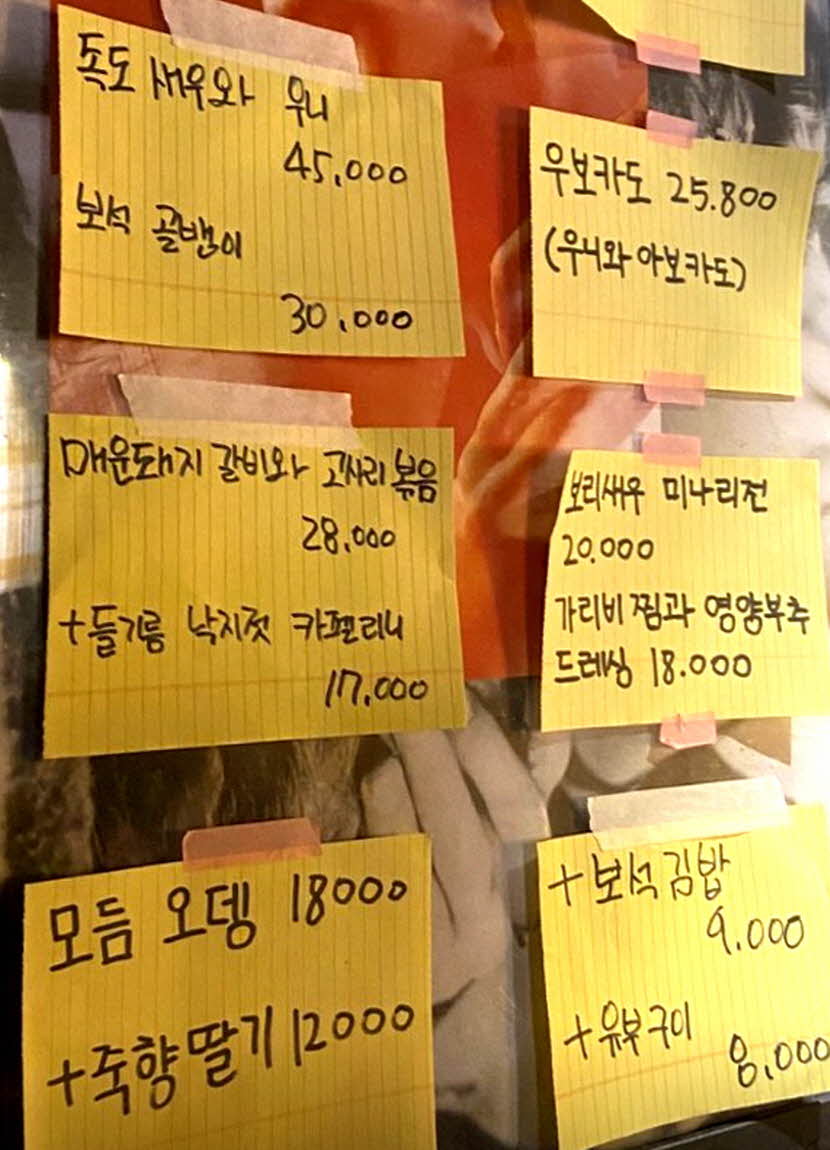 독도 새우와 우니
45,000
보석 골뱅이
30,000
우보카도 25.800
(우니와 아보카도)
매운돼지 갈비와 고사리볶음
28,000
+들기름 낙지젓 카펠리니
17,000
보리새우 미나리전
20.000
가리비찜과 영양부추
드레싱 18.000
모듬 오뎅 18000
+죽향딸기 12000
+보석김밥
9.000
+유부구이
8,000